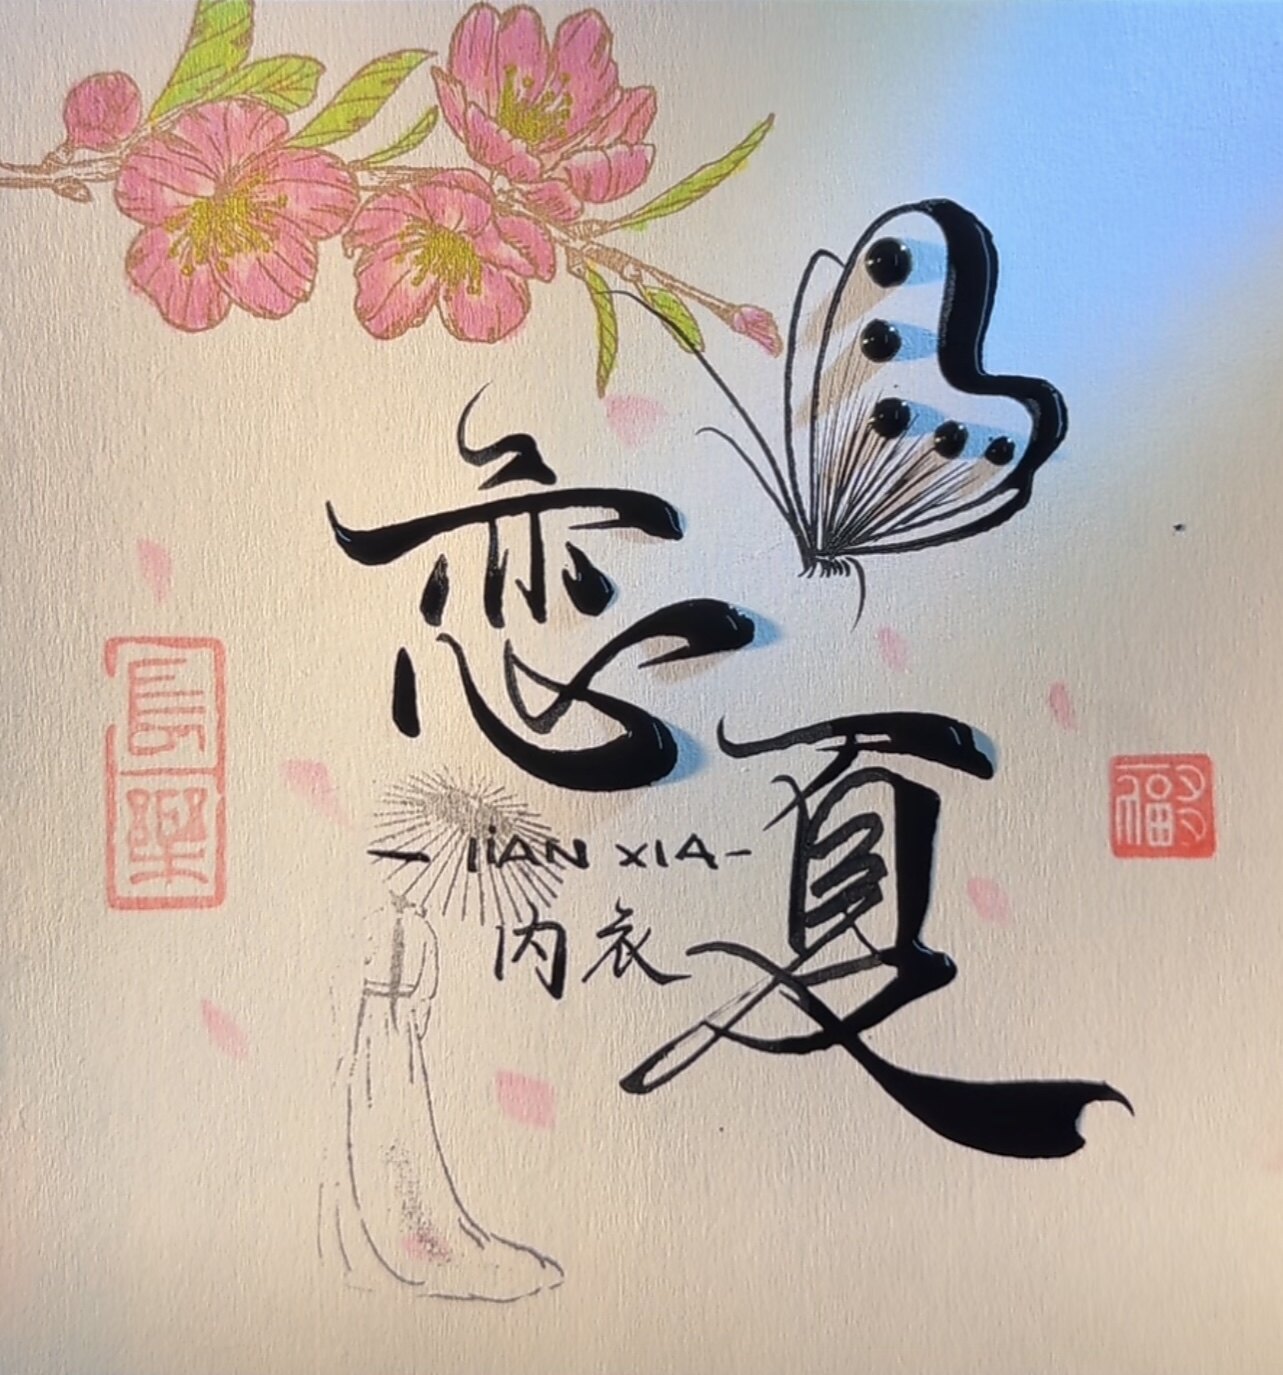 恋夏
- liAN XIA-
内衣
長樂
福